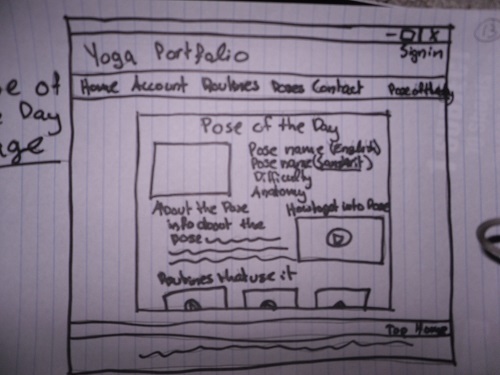 X
Sign in
Yoga Portfolio
Home Account Routines Poses Contact Pose of the Day
of
Day
Pose of the Day
Pose name (English)
Pose name (Sanskrit)
Difficulty
Anatomy
About the Pose
info about the
pose
How to get into Pose
Routines that use it
Top Home